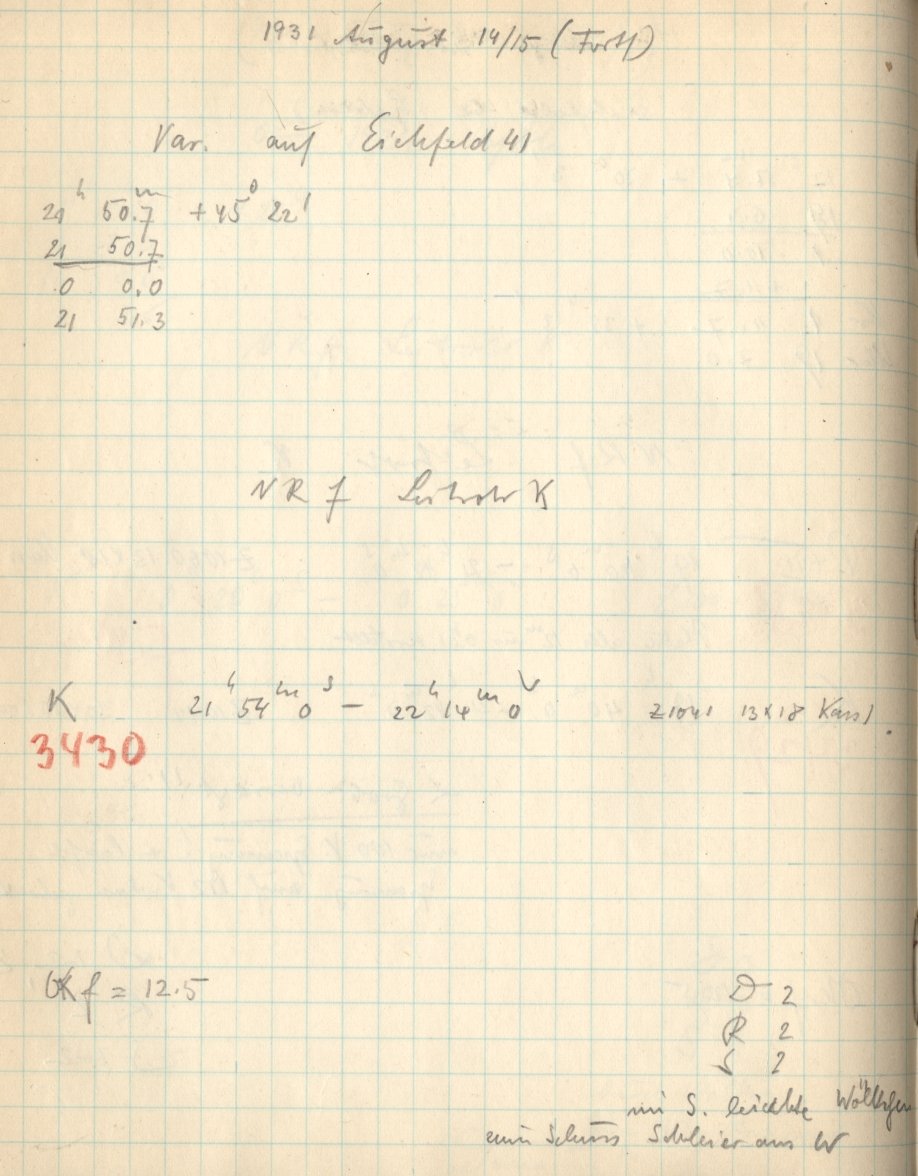 1931 August 14/15 (Forts)
Var. auf Eichfeld 41
21ʰ 50.7ᵐ +45° 22'
21 50.7
0 0.0
21 51.3
NR f Leitrohr K
K 21ʰ 54ᵐ 0ˢ – 22ʰ 14ᵐ 0 Z1041 13x18 Kass 1
3430
Kf = 12.5
D 2
R 2
S 2
im S. leichte Wölkchen
zum Schluss Schleier aus W